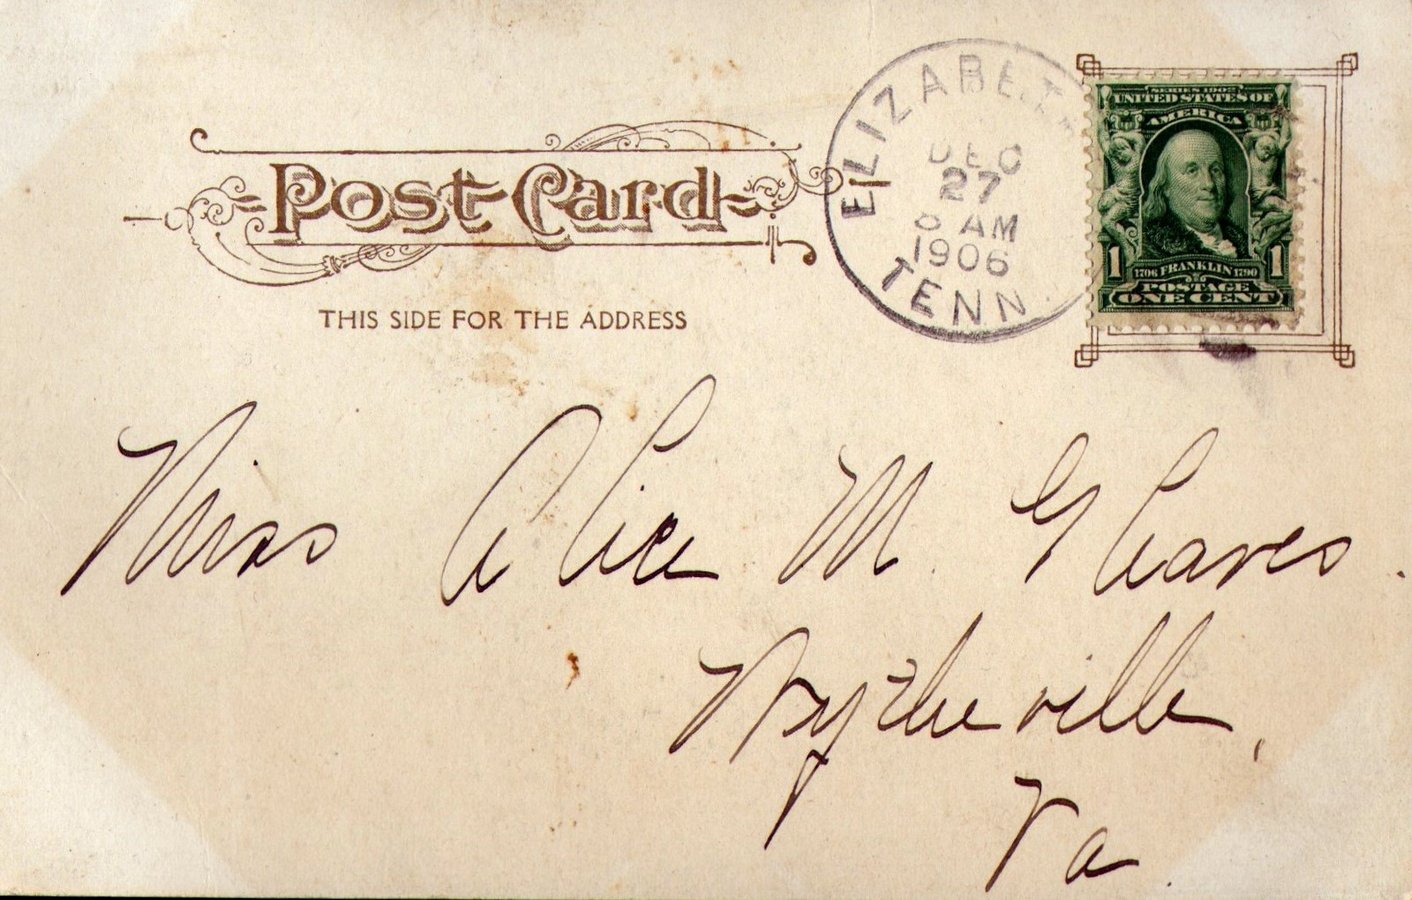 Post Card
THIS SIDE FOR THE ADDRESS
DEC
27
AM
1906
TENN.
SERIES 1902
UNITED STATES OF
AMERICA
1 1
1706 FRANKLIN 1790
POSTAGE
ONE CENT
Miss Alice M. Gleaves.
Wytheville,
Va.